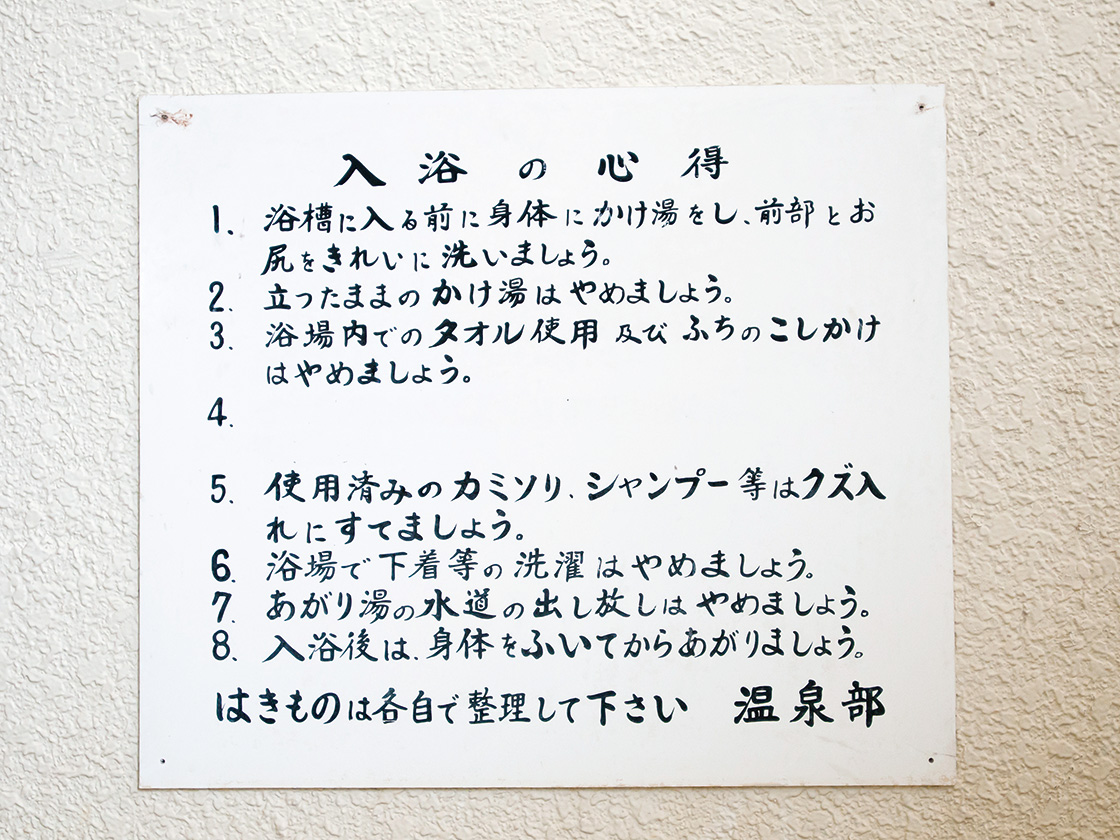 入浴の心得
1. 浴槽に入る前に身体にかけ湯をし、前部とお
尻をきれいに洗いましょう。
2. 立ったままのかけ湯はやめましょう。
3. 浴場内でのタオル使用及びふちのこしかけ
はやめましょう。
4.
5. 使用済みのカミソリ、シャンプー等はクズ入
れにすてましょう。
6. 浴場で下着等の洗濯はやめましょう。
7. あがり湯の水道の出し放しはやめましょう。
8. 入浴後は、身体をふいてからあがりましょう。
はきものは各自で整理して下さい 温泉部